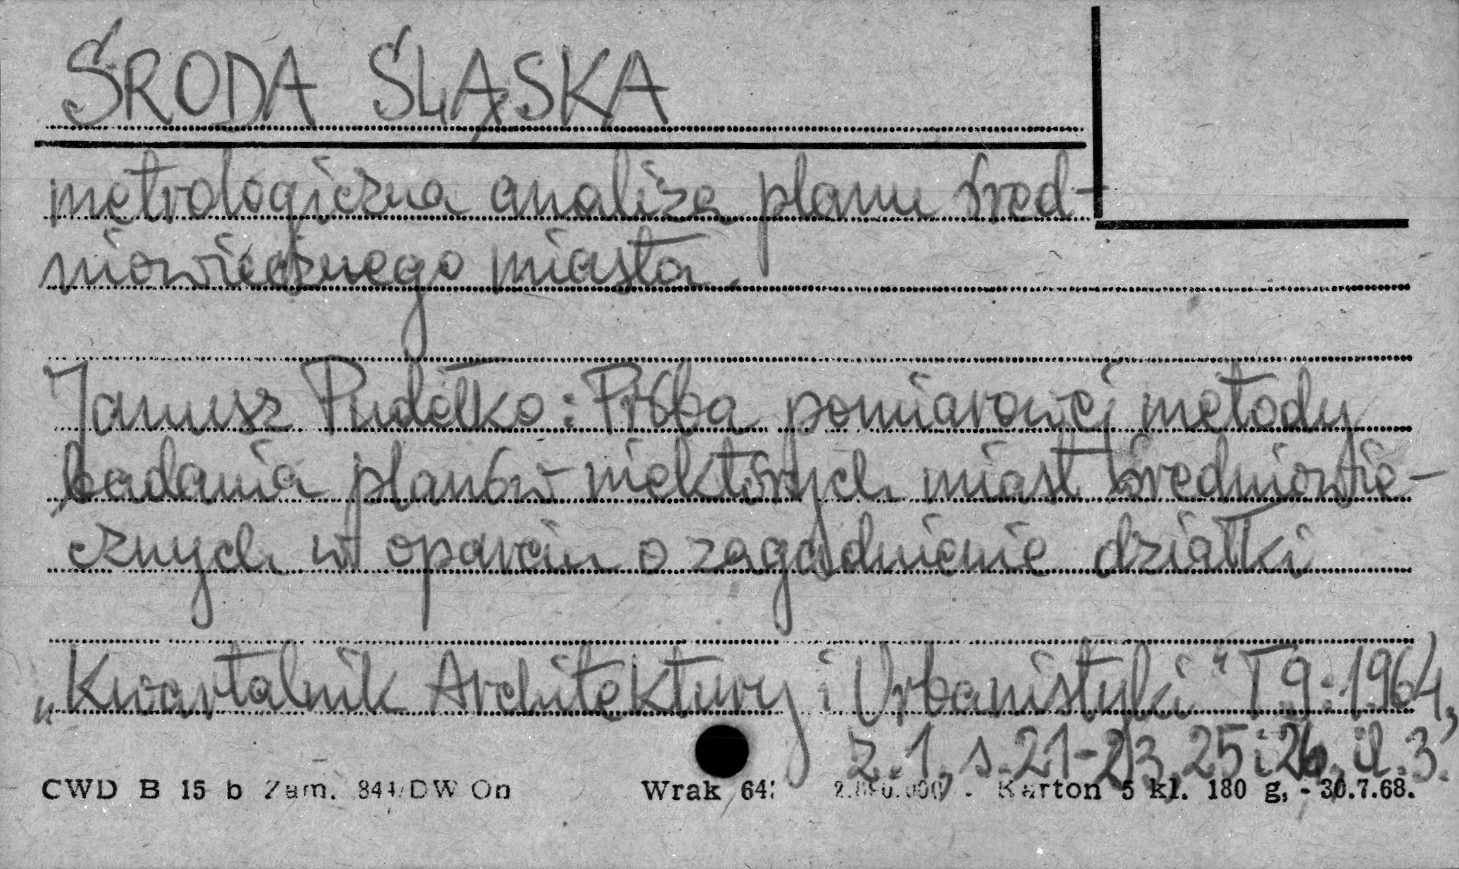 ŚRODA ŚLĄSKA
metrologiczna analiza planu śred-
niowiecznego miasta.
Janusz Pudełko: Próba pomiarowej metody
badania planów niektórych miast średniowie-
cznych w oparciu o zagadnienie działki
„Kwartalnik Architektury i Urbanistyki" T.9: 1964,
z. 1, s. 21-23, 25 i 26, il. 3.
CWD B 15 b Zam. 844/DW On Wrak 64 Karton 5 kl. 180 g, - 30.7.68.